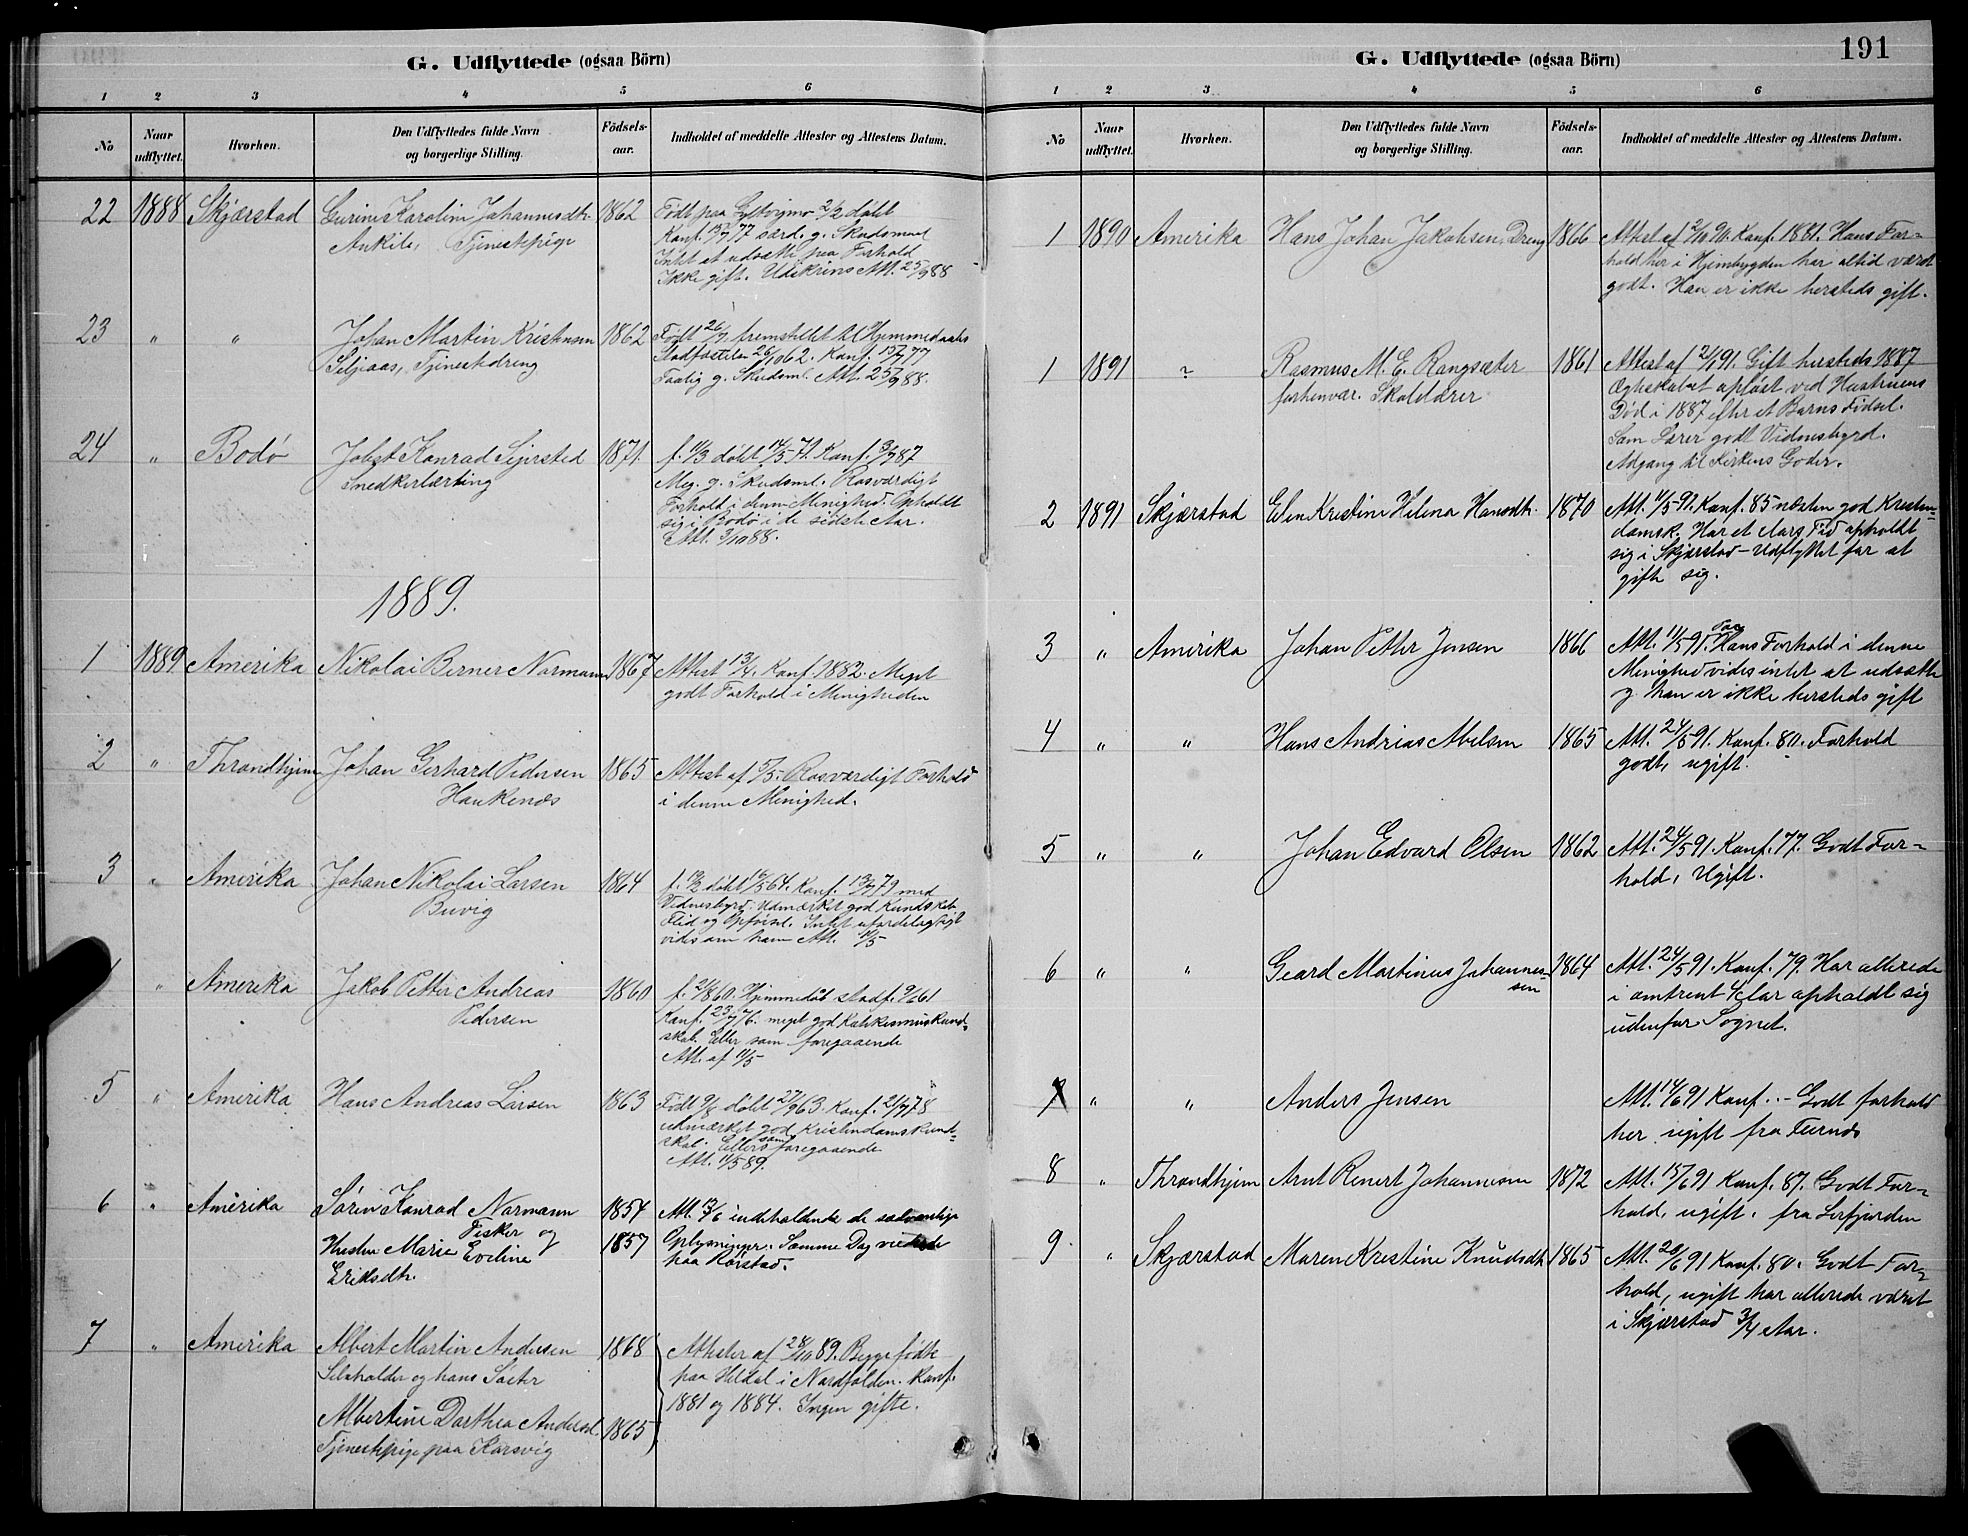 G. Udflyttede (ogsaa Börn)
1 2 3 4 5 6
No
Naar udflyttet.
Hvorhen.
Den Udflyttedes fulde Navn
og borgerlige Stilling.
Födsels-
aar.
Indholdet af meddelte Attester og Attestens Datum.
22 1888 Skjærstad Karolin Johannesdtr. 1862
Tjenestepige
Født paa 2/2 døbt
Konf. 15/7 77 særd. g. Skudsmaal
Intet at udsætte paa Forhold
Ikke gift. Att. 25/9 88
23 " " Johan Martin Kristensen 1862
Tjenestedreng
Født 26/7 fremstillet til Hjemmedaabs
Stadfæstelse 26/10 62. Konf. 15/7 77
g. Skudsml. Att. 25/9 88.
24 " Bodø Konrad Sejersted 1871.
Snedkerlærling
f. 11/3 døbt 14/5 71. Konf. 3/7 87
Meg. g. Skudsml. Rosværdigt
Forhold i denne Menighed. Opholdt
sig i Bodø i de sidste Aar.
Att. 3/10 88.
1889.
1 1889 Amerika Nikolai Berner Normann 1867
Attest 13/4. Konf. 1882. Meget
godt Forhold i Menigheden
2 " Throndhjem Johan Gerhard Pedersen 1865
Haukenæs
Attest af 5/5 – Rosværdigt Forhold
i denne Menighed.
3 " Amerika Johan Nikolai Larsen 1864
Buvig
f. 13/2 døbt 16/5 64. Konf. 13/7 79 med
Vidnesbyrd: Udmærket god Kundskab
Flid og Opførsel. Intet ufordelagtigt
vides om ham Att. 11/5
" Amerika Jakob Petter Andreas 1860
Pedersen
f. 21/8 60. Hjemmedøb stadf. 9/6 61
Konf. 23/7 76. meget god Katekismuskund-
skab. Ellers som foregaaende
Att. af 11/5
5 " Amerika Hans Andreas Larsen 1863
Født 9/8 døbt 27/9 63. Konf. 21/7 78
udmærket god Kristendomskund-
skab. Ellers som foregaaende
Att. 11/5 89.
6 " Amerika Søren Konrad Normann 1854
Fisker og
Hustru Marie Eveline 1857
Eriksdtr.
Att. 13/6 indeholdende de sædvanlige
Oplysninger. Samme Dag viede
paa Rørstad.
7 " Amerika Albert Martin Andersen 1868
Selvholder og hans Søster
Albertine Dorthea Andersd. 1865
Tjenestepige paa Korsvig
Attester af 28/10 89. Begge fødte
paa Heldal i Nordfolden. Konf.
1881 og 1884. Ingen gifte.
191
G. Udflyttede (ogsaa Börn)
1 2 3 4 5 6
No
Naar udflyttet.
Hvorhen.
Den Udflyttedes fulde Navn
og borgerlige Stilling.
Födsels-
aar.
Indholdet af meddelte Attester og Attestens Datum.
1 1890 Amerika Hans Johan Jakobsen, Dreng 1866
Attest af 2/10 90. Konf. 1881. Hans For-
hold her i Hjembygden har altid været
godt. Han er ikke hersteds gift.
1 1891 " Rasmus M. E. Rangsæter 1861
forhenvær. Skolelærer
Attest af 2/1 91. Gift hersteds 1887
Ægteskabet opløst ved Hustruens
Død i 1887 efter et Barns Fødsel.
Som Lærer godt Vidnesbyrd.
Adgang til Kirkens Goder.
2 1891 Skjærstad Elen Kristine Helena Hansdtr. 1870
Att. 11/5 91. Konf. 85 næsten god Kristen-
domsk. Har et Aars Tid opholdt
sig i Skjærstad – Udflyttet for at
gifte sig.
3 " Amerika Johan Petter Jensen 1866
Att. 11/5 91. Paa Hans Forhold i denne
Menighed vides intet at udsætte
og han er ikke hersteds gift
4 " " Hans Andreas Abelsen 1865
Att. 24/5 91. Konf. 80. Forhold
godt, ugift.
5 " " Johan Edvard Olsen 1862
Att. 24/5 91. Konf. 77. Godt For-
hold, Ugift.
6 " " Geard Martinus Johannes- 1864
sen
Att. 24/5 91. Konf. 79. Har allerede
i omtrent Aar opholdt sig
udenfor Sognet.
7 " " Anders Jensen
Att. 14/6 91 Konf. .. – Godt forhold
her ugift fra
8 " Throndhjem Arnt Renert Johannesen 1872
Att. 15/6 91 Konf. 87. Godt For-
hold, ugift. fra Lerfjorden
9 " Skjærstad Maren Kristine Knudsdtr 1865
Att. 20/6 91 Konf. 80. Godt For-
hold, ugift har allerede været
i Skjærstad 3/4 Aar.